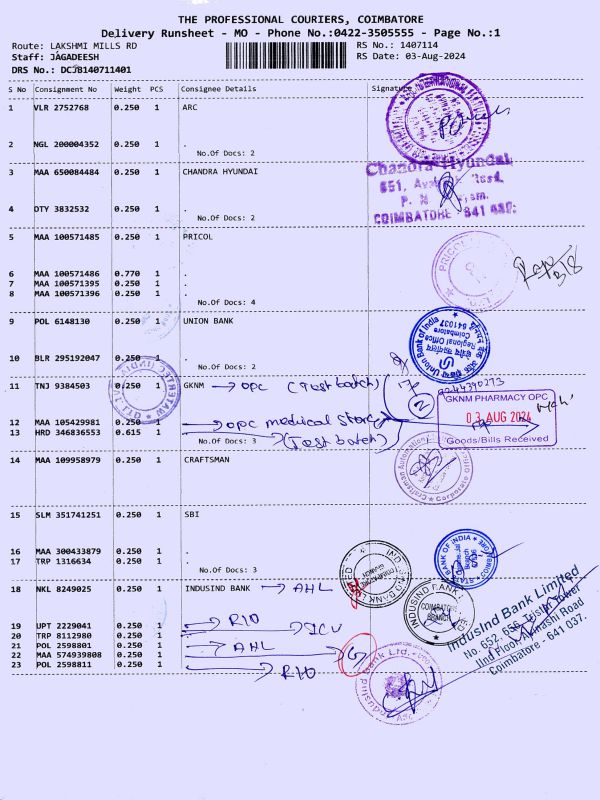 THE PROFESSIONAL COURIERS, COIMBATORE
Delivery Runsheet - MO - Phone No.:0422-3505555 - Page No.:1
Route: LAKSHMI MILLS RD RS No.: 1407114
Staff: JAGADEESH RS Date: 03-Aug-2024
DRS No.: DCJB140711401
S No Consignment No Weight PCS Consignee Details Signature
1 VLR 2752768 0.250 1 ARC
2 NGL 200004352 0.250 1 .
No.Of Docs: 2
3 MAA 650084484 0.250 1 CHANDRA HYUNDAI
Chandra Hyundai
COIMBATORE
4 DTY 3832532 0.250 1 .
No.Of Docs: 2
5 MAA 100571485 0.250 1 PRICOL
PRICOL
6 MAA 100571486 0.770 1 .
7 MAA 100571395 0.250 1 .
8 MAA 100571396 0.250 1 .
No.Of Docs: 4
9 POL 6148130 0.250 1 UNION BANK
Union Bank of India
Regional Office
Coimbatore
641037
10 BLR 295192047 0.250 1 .
No.Of Docs: 2
11 TNJ 9384503 0.250 1 GKNM OPC (Test batch)
2
GKNM PHARMACY OPC
03 AUG 2024
Goods/Bills Received
12 MAA 105429981 0.250 1 . OPC medical Store
13 HRD 346836553 0.615 1 . (Test batch)
No.Of Docs: 3
14 MAA 109958979 0.250 1 CRAFTSMAN
Craftsman Automation
Corporate
15 SLM 351741251 0.250 1 SBI
16 MAA 300433879 0.250 1 .
17 TRP 1316634 0.250 1 .
No.Of Docs: 3
STATE BANK OF INDIA
18 NKL 8249025 0.250 1 INDUSIND BANK AHL
INDUSIND BANK
COIMBATORE
BRANCH
IndusInd Bank Limited
No. 652, 656, Tristar Tower
IInd Floor, Avinashi Road
Coimbatore - 641 037.
19 UPT 2229041 0.250 1 . R10
20 TRP 8112980 0.250 1 . ICU
21 POL 2598801 0.250 1 . AHL
22 MAA 574939808 0.250 1 .
23 POL 2598811 0.250 1 . R10